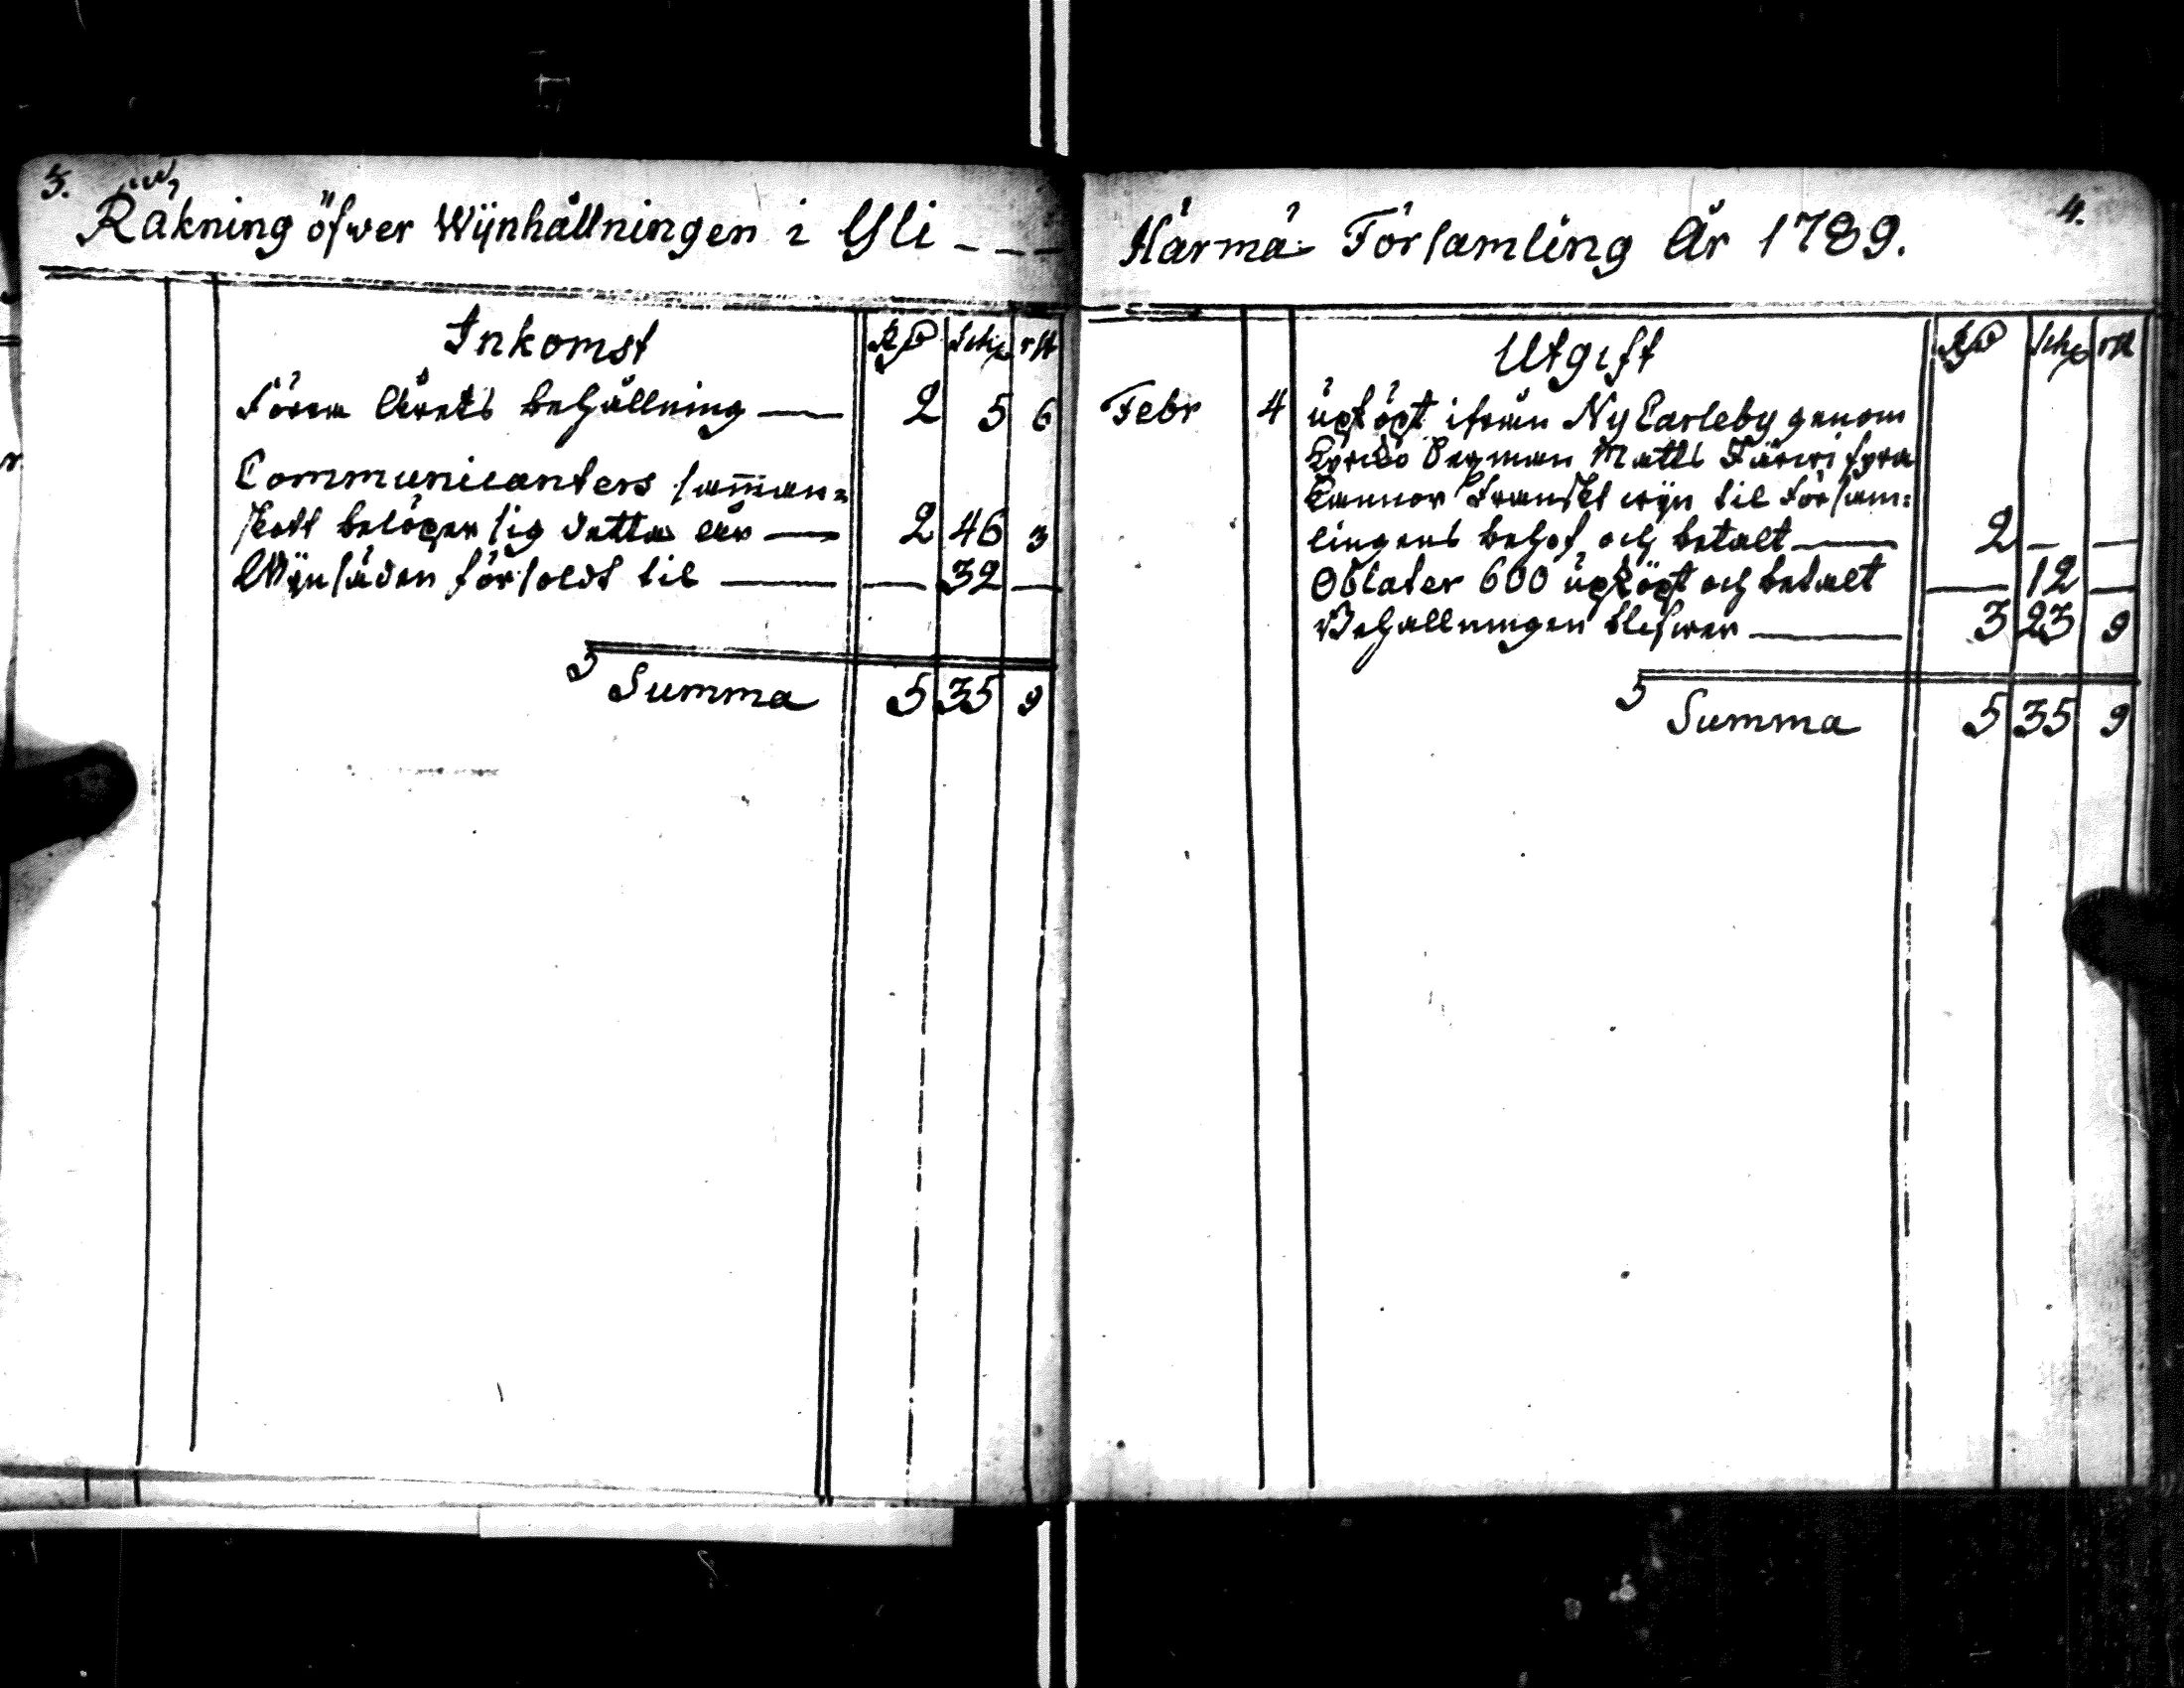 3.
Räkning öfwer Wijnhållningen i Yli - - -
Inkomst Rd Sch rst
Förra Årets behållning — 2 5 6
Communicanters samman=
skott belöper sig detta år — 2 46 3
Wijnsäden försoldt til — — 32 —
S Summa 5 35 9
4.
Härmä Församling År 1789.
Utgift Rd Sch rst
Febr 4 upköpt ifrån Ny Carleby genom
Matts Järwi fyra
Cannor Franskt wijn til Försam=
lingens behof och betalt — 2 — —
Oblater 600 upköpt och betalt — 12 —
Behållningen blifwer — 3 23 9
S Summa 5 35 9